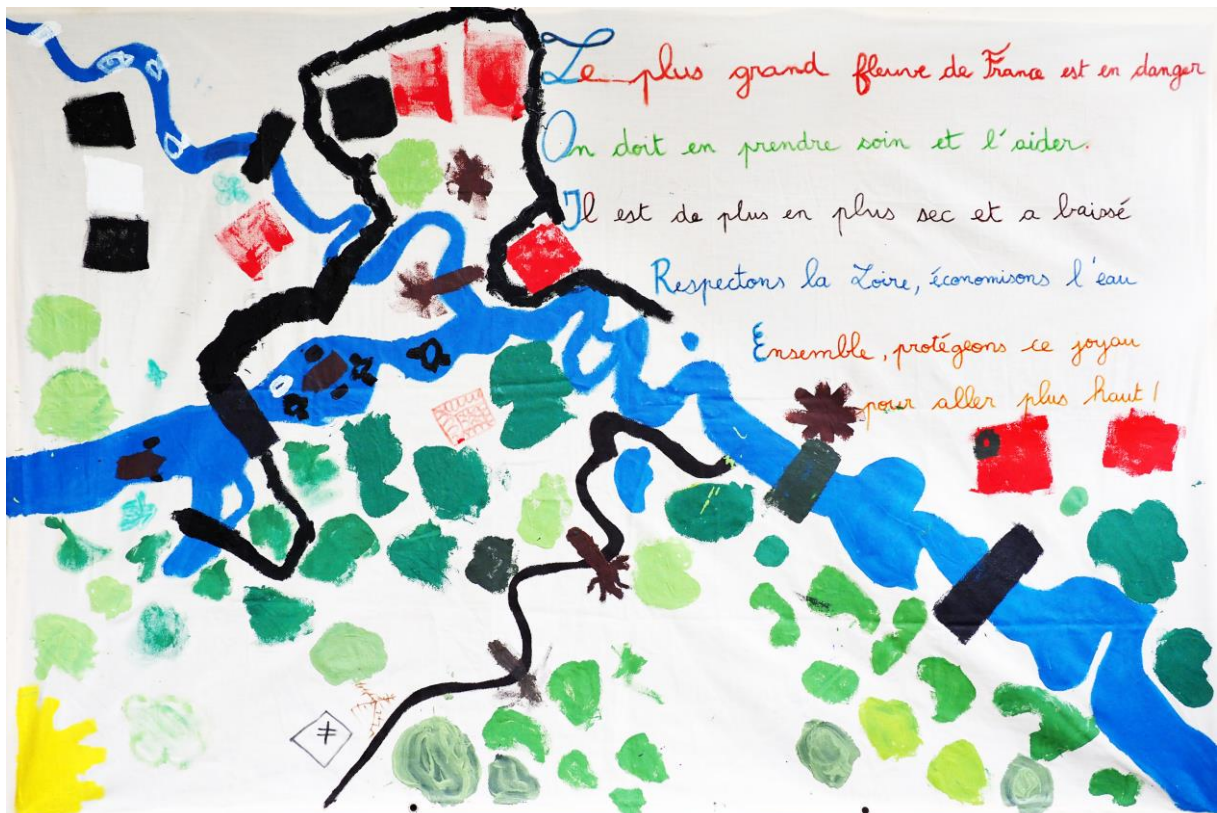 Le plus grand fleuve de France est en danger
On doit en prendre soin et l'aider.
Il est de plus en plus sec et a baissé
Respectons la Loire, économisons l'eau
Ensemble, protégeons ce joyau
pour aller plus haut !